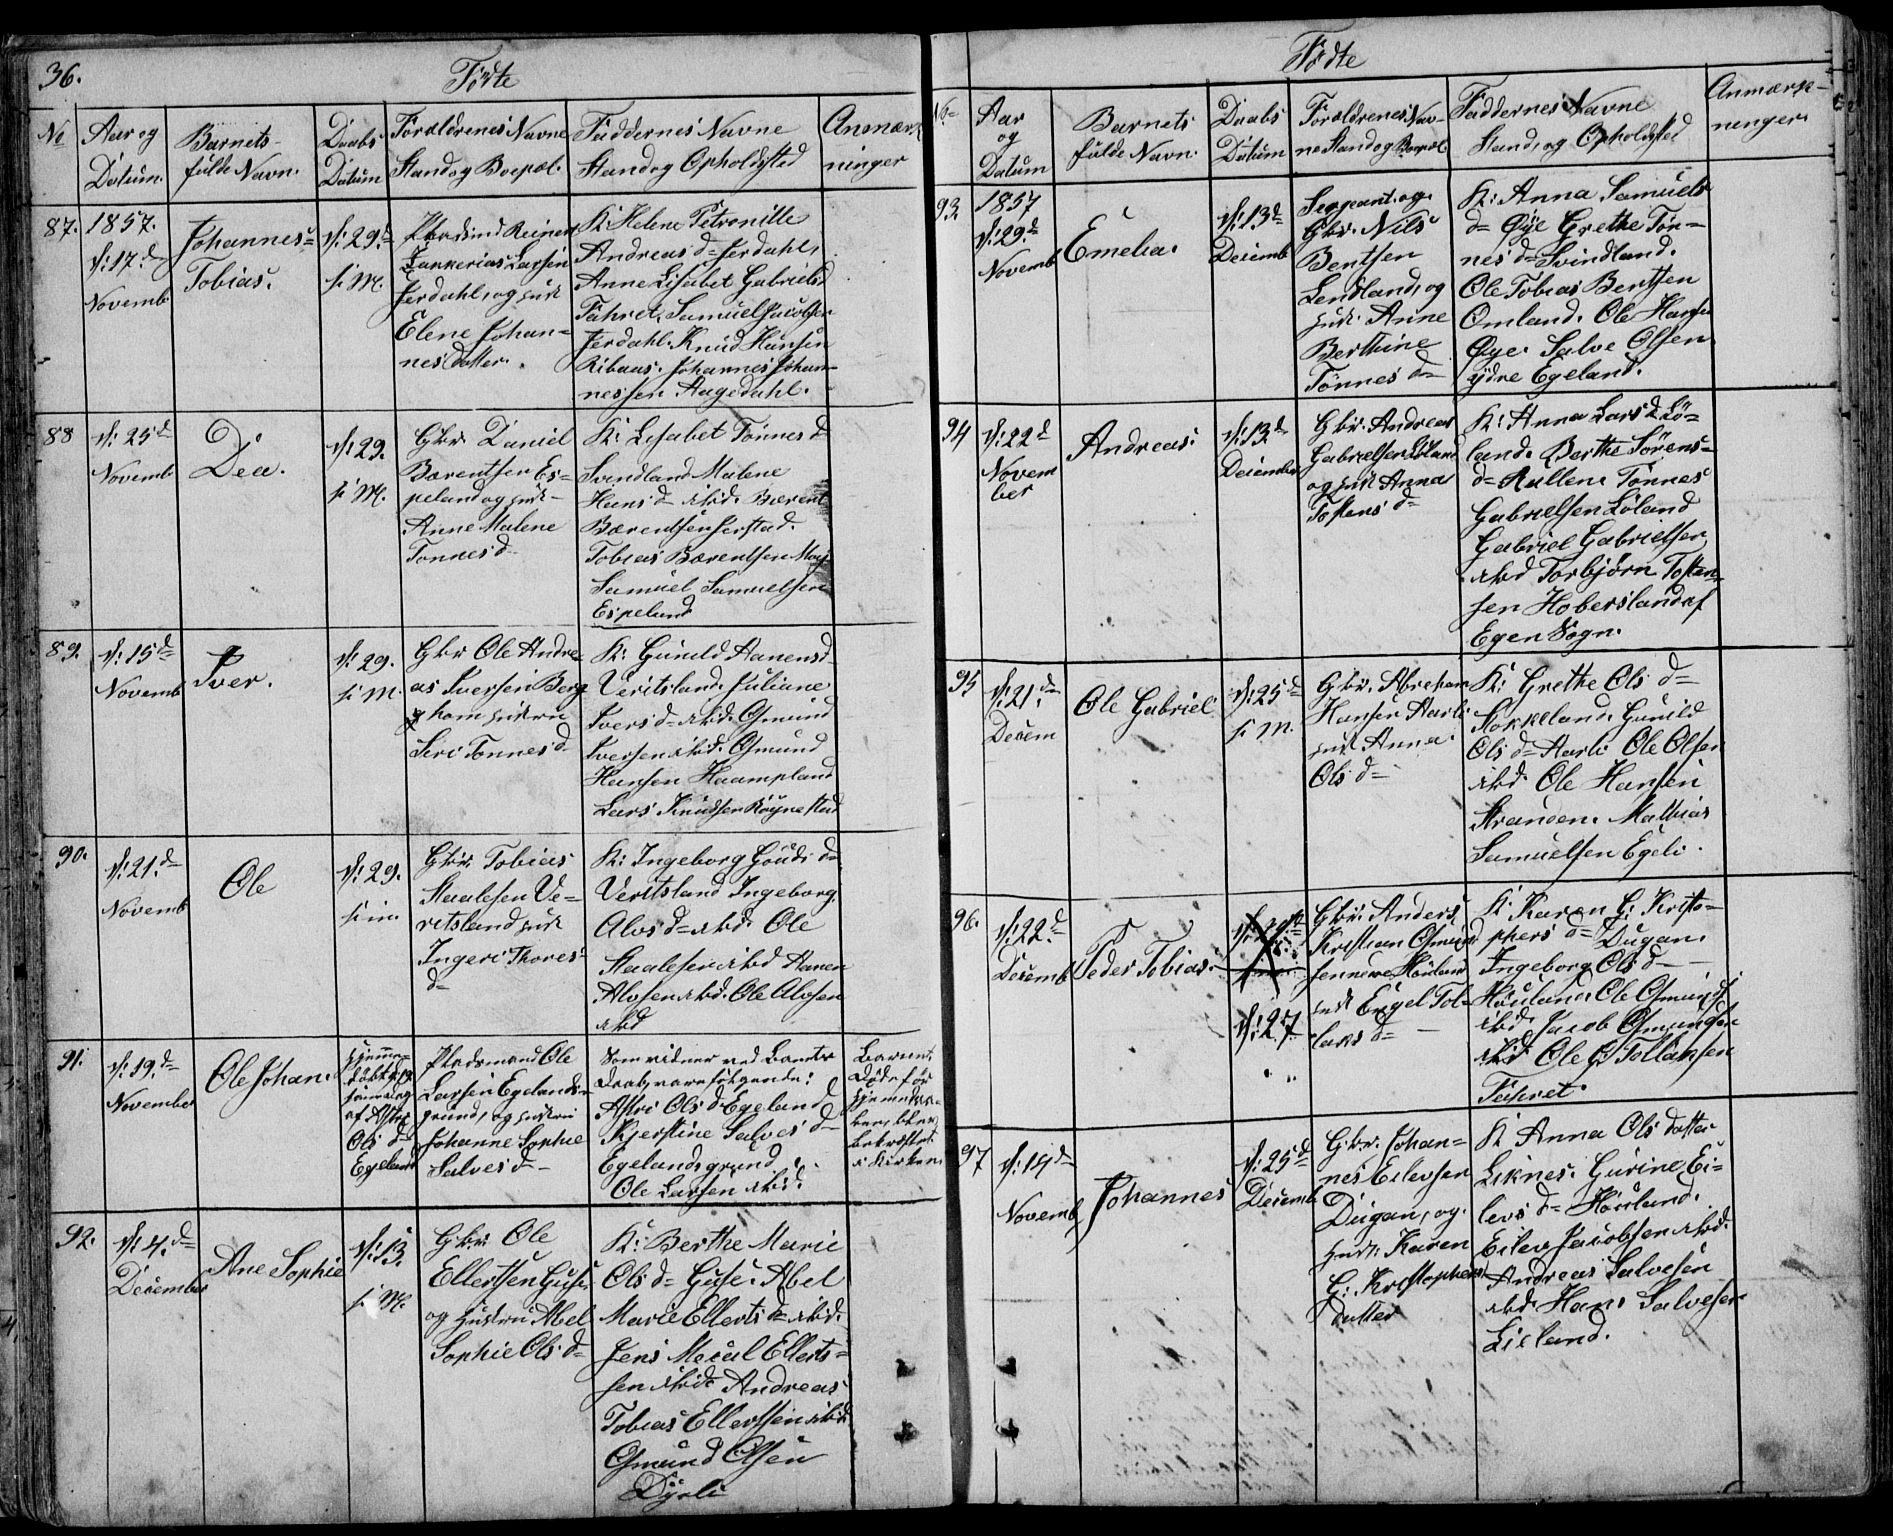 36.
Fødte
No
Aar og
Datum.
Barnets
fulde Navn.
Daabs
Datum
Forældrenes Navne
Stand og Boepæl.
Faddernes Navne
Stand og Opholdsted
Anmærk
ninger
87.
1857.
d: 17.d
Novemb
Johannes
Tobias.
d: 29.d
s: M.
Pladsmd Reinert
Larsen
Jerdahl, og hust
Elene Johan=
nesdatter.
K: Helene Petronille
Andreas d= Jerdahl,
Anne Lisabet Gabriels d
Fahret, Samuel Jacobsen
Jerdahl. Knud Hansen
Ribaas. Johannes Johan=
nessen Aagedahl.
88
d: 25d
Novemb
Dea.
d: 29.
s: M.
Gbr. Daniel
Barentsen Es=
peland og hust
Anne Malene
Tønnes d
K: Lisabet Tønnes d
Svindland Malene
Hans d= ibid. Bærent
Bærentsen Jerstad.
Tobias Bærentsen
Samuel Samuelsen
Espeland
89.
d: 15d
Novemb
Iver.
d: 29.
s: M.
Gbr Ole Andre
as Iversen Berg
ham hustru
Siri Tønnes d=
K: Gunild Aanens d
Veritsland. Juliane
Ivers d= ibid. Osmund
Iversen ibid. Osmund
Hansen Haampland
Lars Knudsen Røynestad
90.
d: 21.d
Novemb
Ole
d: 29.
s: m.
Gbr. Tobias
Staalesen Ve=
ritsland hust
Ingeri Thores
d=
K: Ingeborg d=
Veritsland Ingeborg
Alvs d= ibid. Ole
Staalesen ibid Aanen
Alvsen ibid. Ole Alvsen
ibid
91.
d: 19.d
November
Ole Johan.
hjemme=
døbt
af Astri
Ols d=
Egeland
Pladsmand Ole
Larsen Egelands=
grund, og hustru
Johanne Sophie
Salves d=
Som vidner ved Barnets
Daab, vare følgende:
Astri Ols d Egeland
Kjerstine Salves d=
Egelandsgrund
Ole Larsen ibid.
Barnet
Døde før
bekræftet
i Kirken.
92.
d: 4.d
December
Ane Sophie
d: 13.
s: M.
Gbr. Ole
Ellertsen Guse
og hustru Abel
Sophie Ols d=
K: Berthe Marie
Ols d= Guse. Abel
Marie Ellerts d= ibid.
Jens Mecal Ellerts=
sen ibid. Andreas
Tobias Ellertsen ibid
Osmund Olsen
Dyrli
Fødte
No
Aar
og
Datum
Barnets
fulde Navn.
Daabs
Datum
Forældrenes Nav=
ne Stand og Boepæl.
Faddernes Navne
Stand, og Opholdsted
Anmærk=
ninger.
93.
1857
d: 29.d
Novemb
Emelia.
d: 13d
Decemb
Sergeant og
Gbr. Nils
Bentsen
Lendland, og
hust. Anne
Berthine
Tønnes d=
K: Anna Samuels
d= Øye Grethe Tøn=
nes d= Svindland.
Ole Tobias Bentsen
Omland. Ole Hansen
Øye. Salve Olsen
ydre Egeland.
94
d: 22d
Novem
ber
Andreas.
d: 13d
December
Gbr. Andreas
Gabrielsen Løland
og hust Anna
Tostens d=
K: Anna Lars d Lø=
land. Berthe Sørens=
d= Rullen. Tønnes
Gabrielsen Løland
Gabriel Gabrielsen
ibid Torbjørn Tosten=
sen Hobersland af
Egen Sogn.
95
d: 21.d
Decem
Ole Gabriel
d: 25d
s: M.
Gbr. Abreham
Hansen Aarli
hust Anna
Ols d=
K: Grethe Ols d=
Stokkeland. Gunild
Ols d= Aarli Ole Olsen
ibid. Ole Hansen
Stranden. Mathias
Samuelsen Egeli.
96.
d: 22.d
Decemb
Peder Tobias.
d: 27
" "
Gbr. Anders
Kristian Osmund
sen Høiland
hust Engel Tol=
laks d=
K: Karen G: Kristo=
phers d= Dugan.
Ingeborg Ols d=
Høiland. Ole Osmunds
ibid. Jacob Osmundsen
ibid. Ole G: Tollaksen
Fahret.
97
d: 14d
Novemb
Johannes
d: 25d
Decemb
Gbr. Johan=
nes Eilevsen
Dugan, og
hust: Karen
G: Kristophers
datter
K: Anna Ols datter
Liknes. Gurine Ei=
levs d= Høiland.
Eilev Jacobsen ibid.
Andreas Salvesen
ibid. Hans Salvesen
Lieland.